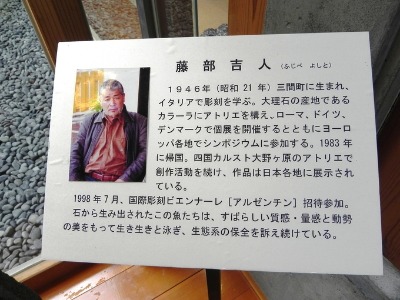 藤部吉人 (ふじべ よしと)
1946年（昭和21年）三間町に生まれ、
イタリアで彫刻を学ぶ。大理石の産地である
カラーラにアトリエを構え、ローマ、ドイツ、
デンマークで個展を開催するとともにヨーロ
ッパ各地でシンポジウムに参加する。1983年
に帰国。四国カルスト大野ヶ原のアトリエで
創作活動を続け、作品は日本各地に展示され
ている。
1998年7月、国際彫刻ビエンナーレ［アルゼンチン］招待参加。
石から生み出されたこの魚たちは、すばらしい質感・量感と動勢
の美をもって生き生きと泳ぎ、生態系の保全を訴え続けている。